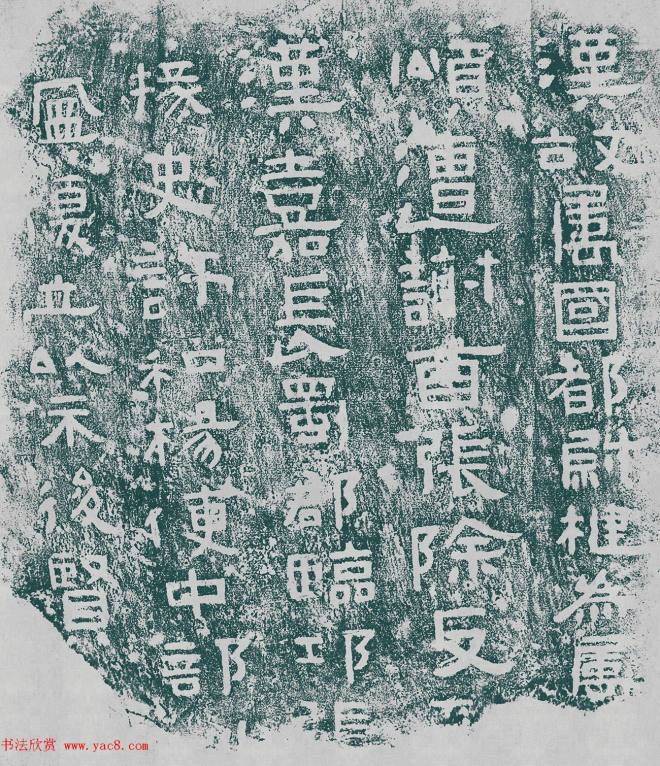 漢故屬國都尉楗為屬
頌遭謝酉張除反
漢嘉長蜀郡臨邛張
掾史許和楊便中部
復立以示後賢
书法欣赏 www.yac8.com